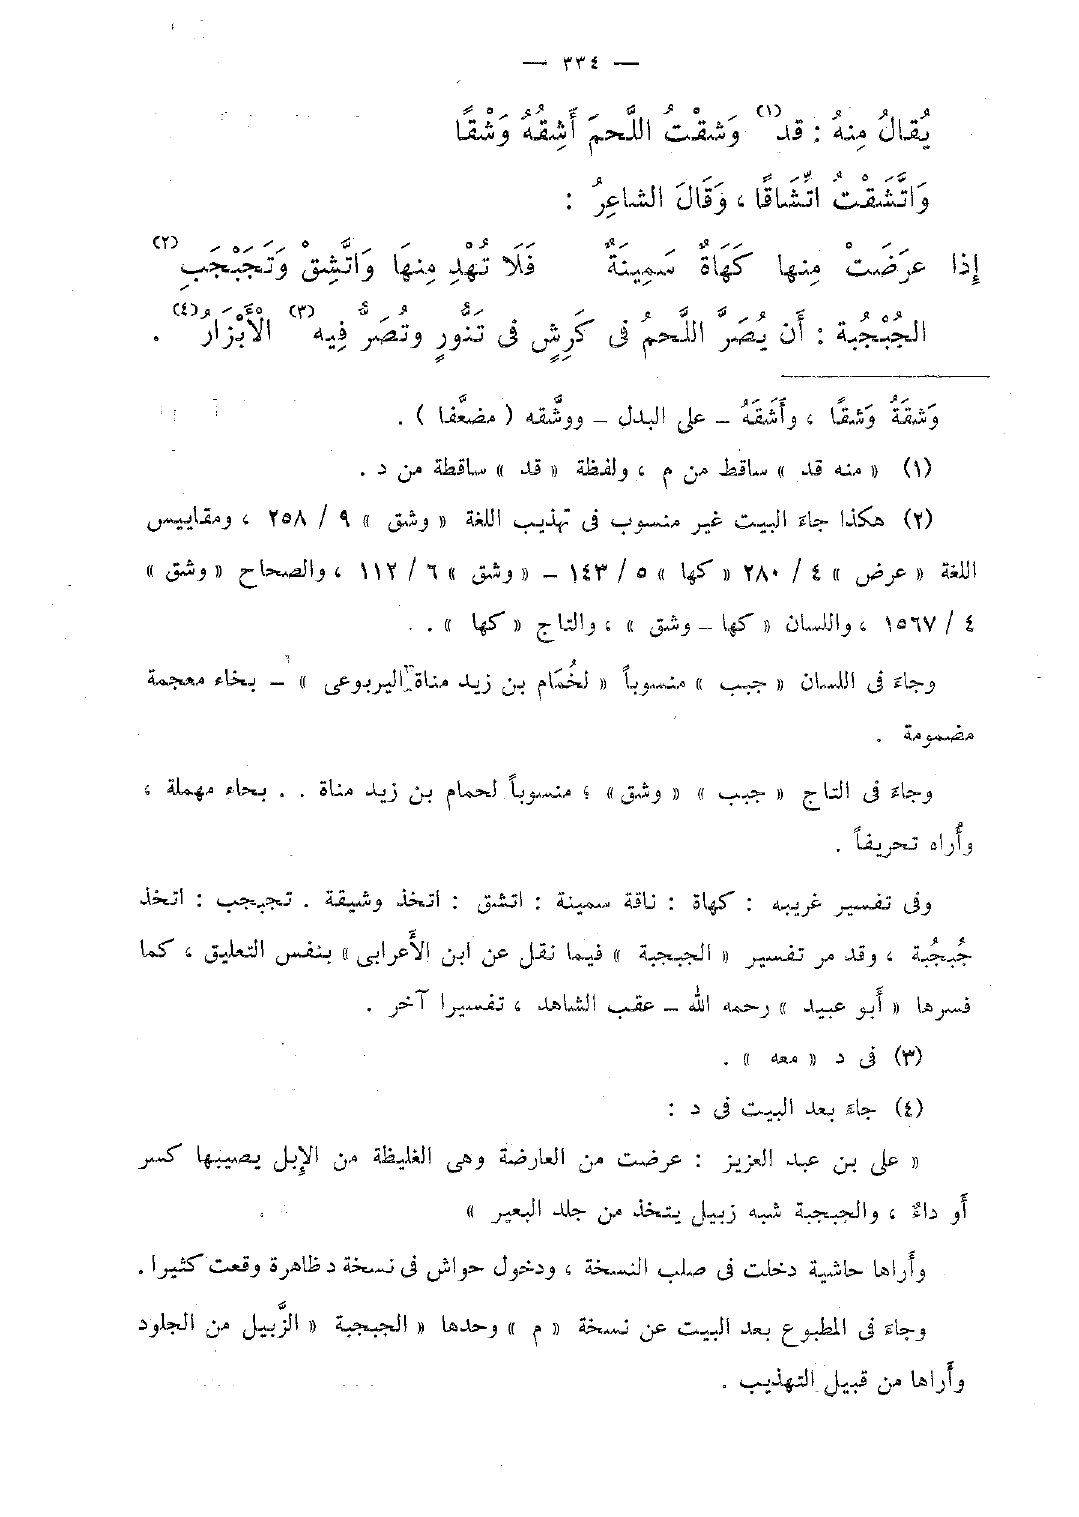 — ٣٣٤ —
يُقالُ مِنهُ : قد(١) وَشقْتُ اللَّحمَ أَشِقُهُ وَشْقًا
وَاتَّشَقْتُ اتِّشَاقًا ، وَقَالَ الشاعِرُ :
إِذا عرَضَتْ مِنها كَهَاةٌ سَمِينَةٌ فَلَا تُهْدِ مِنهَا وَاتَّشِقْ وَتَجَبْجَبِ(٢)
الجُبْجُبة : أَن يُصَرَّ اللَّحمُ فى كَرِشٍ فى تَنُّورٍ وتُصَرُّ فِيه(٣) الْأَبْزَارُ(٤) .
وَشقَةُ وَشقًا ، وأَشَقَهُ – على البدل – ووشَّقه ( مضعَّفا ) .
(١) « منه قد » ساقط من م ، ولفظة « قد » ساقطة من د .
(٢) هكذا جاءَ البيت غير منسوب فى تهذيب اللغة « وشق » ٩ / ٢٥٨ ، ومقاييس
اللغة « عرض » ٤ / ٢٨٠ « كها » ٥ / ١٤٣ – « وشق » ٦ / ١١٢ ، والصحاح « وشق »
٤ / ١٥٦٧ ، واللسان « كها – وشق » ، والتاج « كها » . .
وجاءَ فى اللسان « جبب » منسوباً « لخُمَام بن زيد مناة اليربوعى » – بخاء معجمة
مضمومة .
وجاءَ فى التاج « جبب » « وشق » ؛ منسوباً لحمام بن زيد مناة . . بحاء مهملة ،
وأُراه تحريفاً .
وفى تفسير غريبه : كهاة : ناقة سمينة : اتشق : اتخذ وشيقة . تجبجب : اتخذ
جُبجُبة ، وقد مر تفسير « الجبجبة » فيما نقل عن ابن الأَعرابى » بنفس التعليق ، كما
فسرها « أَبو عبيد » رحمه الله – عقب الشاهد ، تفسيرا آخر .
(٣) فى د « معه » .
(٤) جاءَ بعد البيت فى د :
« على بن عبد العزيز : عرضت من العارضة وهى الغليظة من الإِبل يصيبها كسر
أَو داءٌ ، والجبجبة شبه زبيل يتخذ من جلد البعير »
وأَراها حاشية دخلت فى صلب النسخة ، ودخول حواش فى نسخة د ظاهرة وقعت كثيرا .
وجاءَ فى المطبوع بعد البيت عن نسخة « م » وحدها « الجبجبة « الزَّبيل من الجلود
وأَراها من قبيل التهذيب .